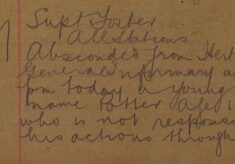 Supt Foster
All Stations
Absconded from Hert
General Infirmary a
pm today a young
name Potter Age 1
who is not respons
his actions through